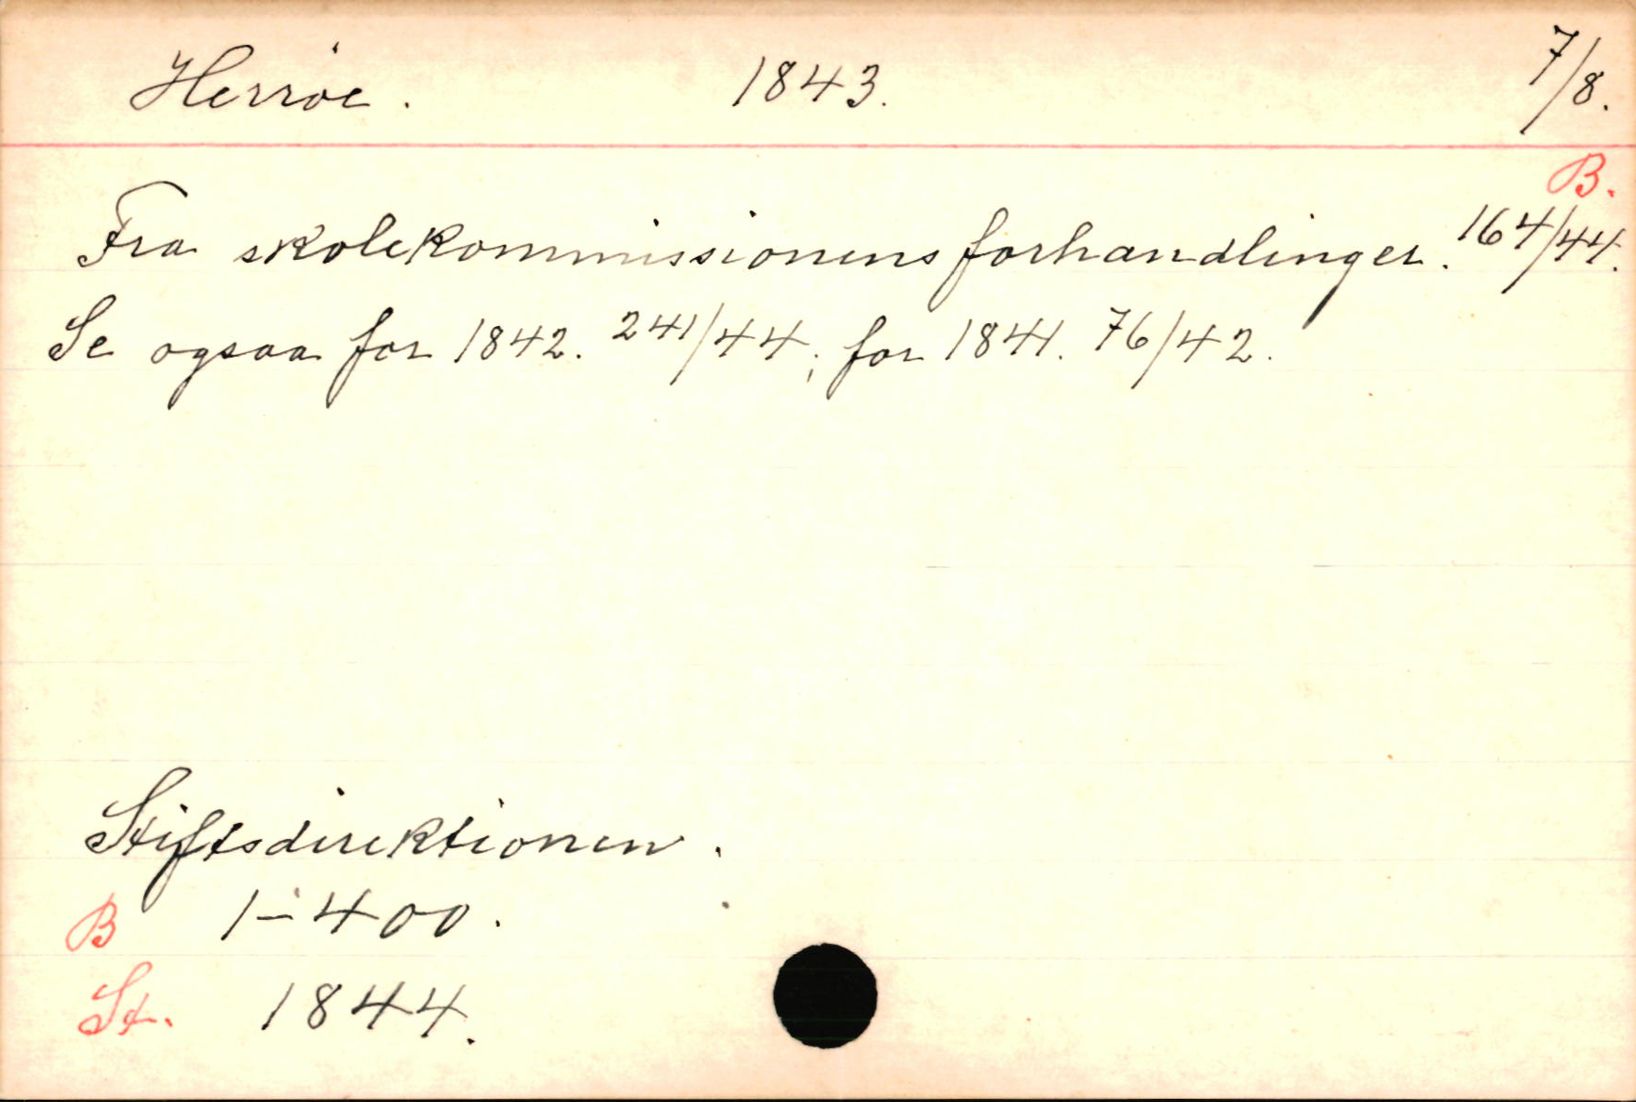 Herröe. 1843. 7/8.
B.
Fra skolekommissionens forhandlinger. 164/44.
Se ogsaa for 1842. 241/44; for 1841. 76/42.
Stiftsdirektionen.
B 1-400.
St. 1844.